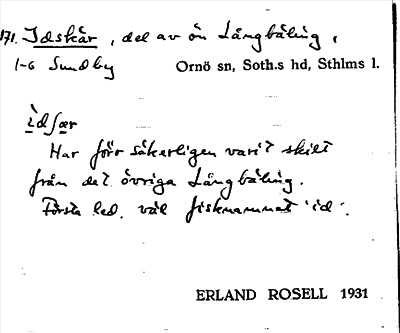 171. Idskär, del av ön Långbäling,
1-6 Sundby Ornö sn, Soth.s hd, Sthlms l.
ìdʃær
Har förr säkerligen varit skilt
från det övriga Långbäling.
Första led. väl fisknamnet 'id'.
ERLAND ROSELL 1931